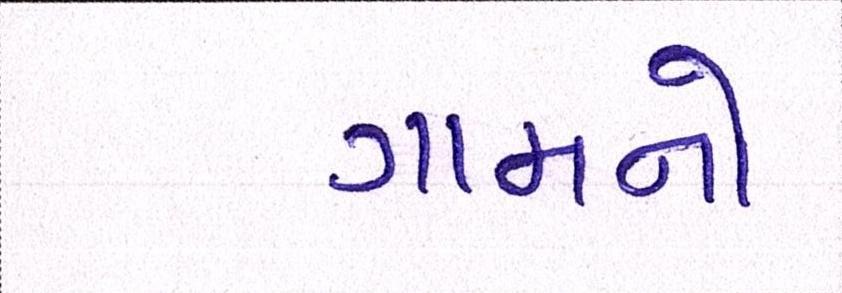 ગામનો